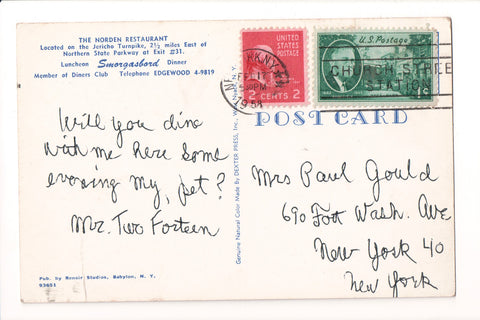 THE NORDEN RESTAURANT
Located on the Jericho Turnpike, 2½ miles East of
Northern State Parkway at Exit #31.
Luncheon Smorgasbord Dinner
Member of Diners Club Telephone EDGEWOOD 4-9819
Will you dine
with me here some
evening my, pet?
Mr. Two Forteen
Pub. by Renoir Studios, Babylon, N. Y.
93651
Genuine Natural Color Made By DEXTER PRESS, INC., West Nyack, N. Y.
UNITED STATES
POSTAGE
2 CENTS 2
U.S. Postage
N.Y.
1958
CHURCH STREET
STA.
POST CARD
Mrs Paul Gould
690 Fort Wash. Ave
New York 40
New York